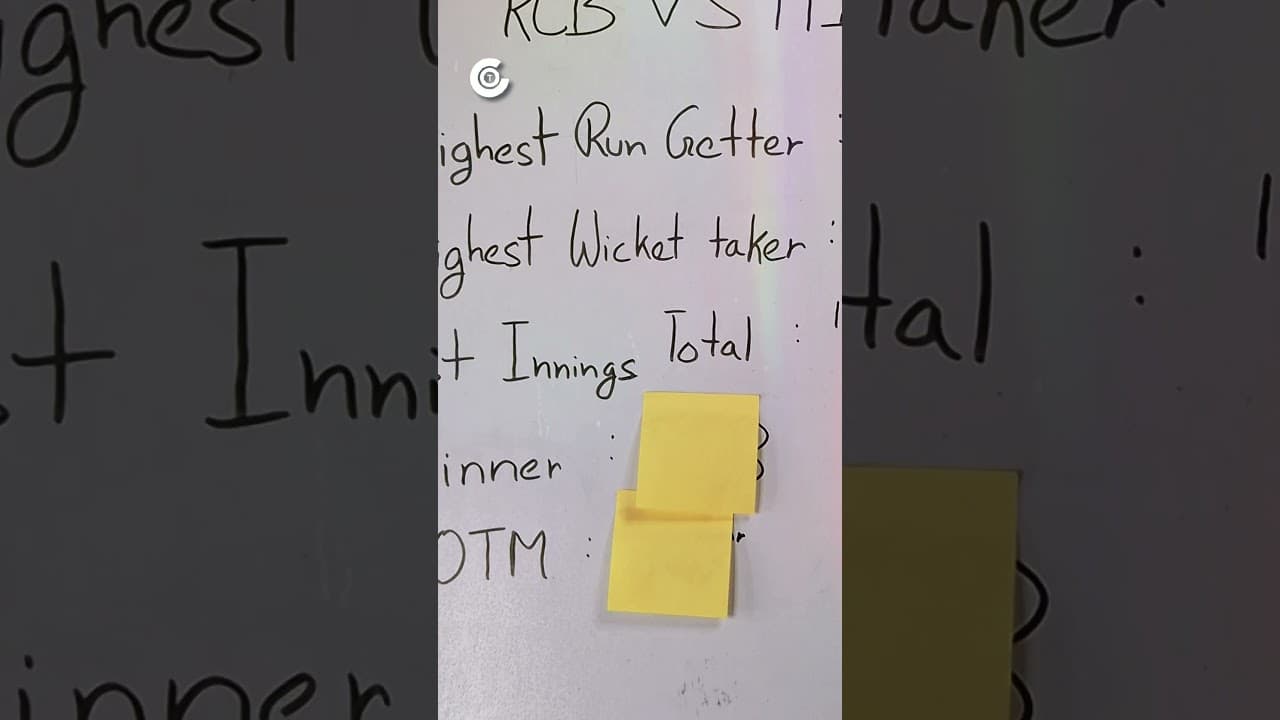 RCB VS MI
ighest Run Getter :
ghest Wicket taker :
t Innings Total : "
inner :
OTM :